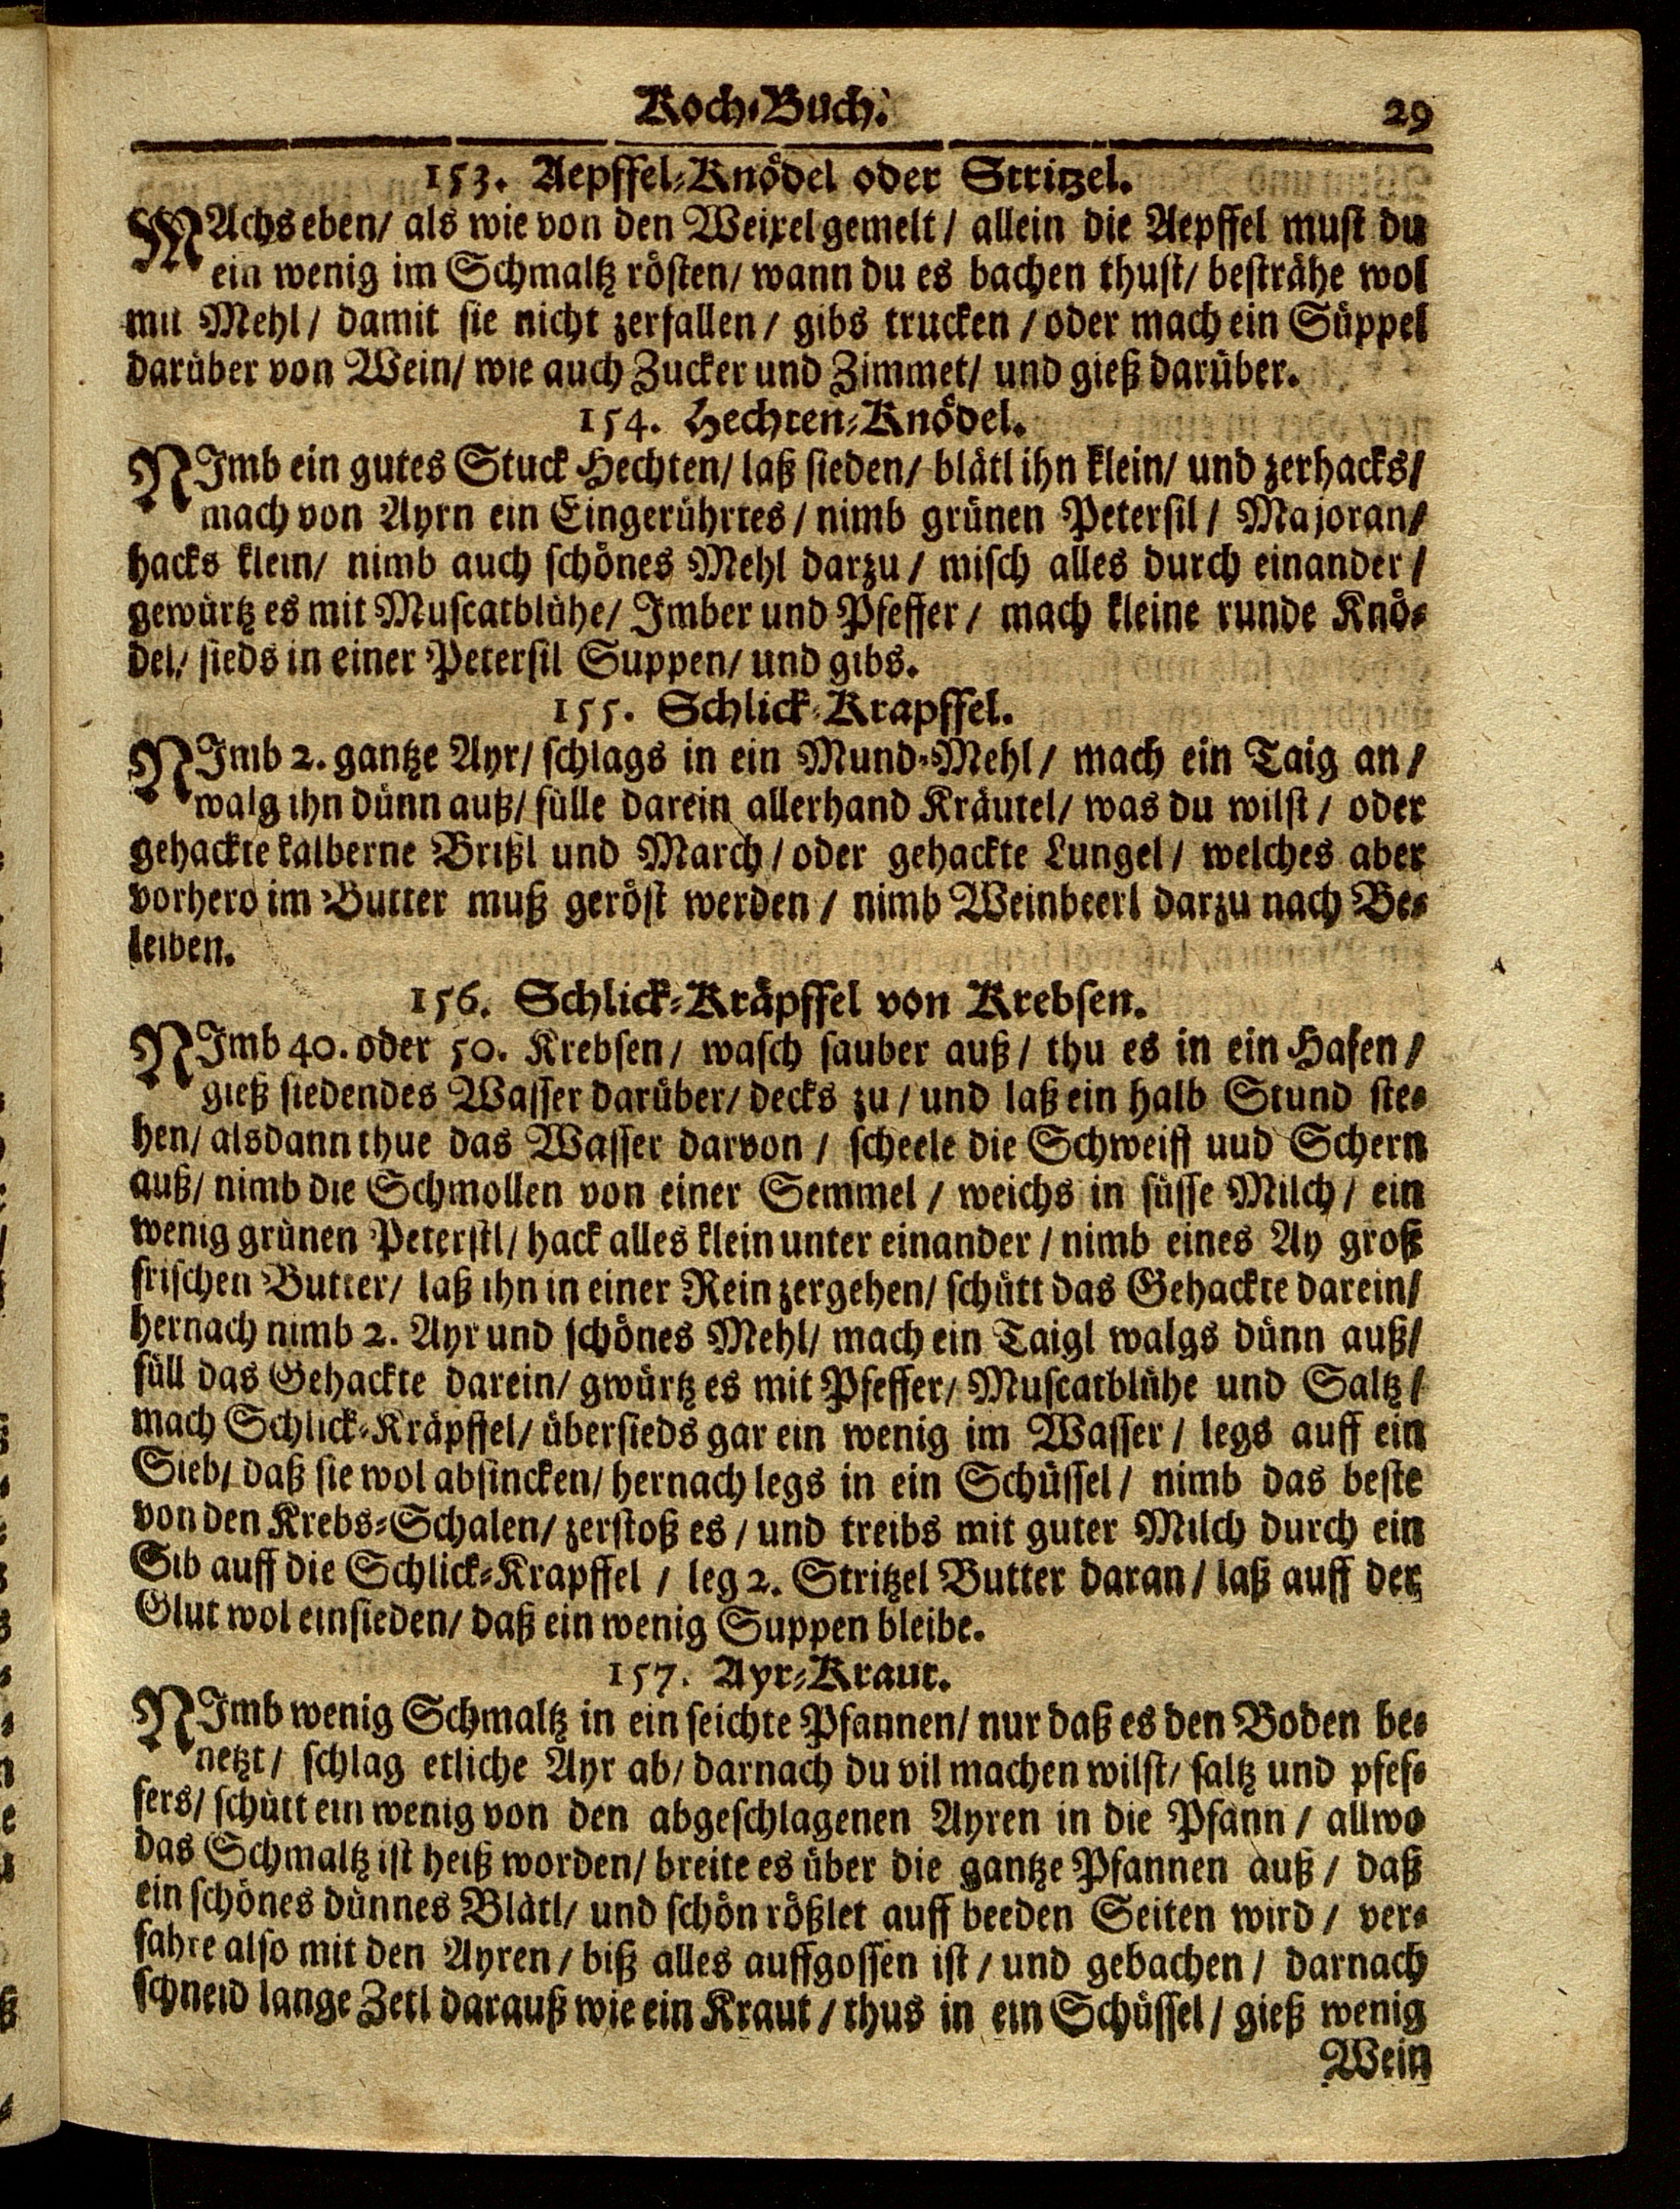 Koch-Buch. 29
153. Aepffel-Knödel oder Stritzel.
MAchs eben/ als wie von den Weixel gemelt/ allein die Aepffel must du
ein wenig im Schmaltz rösten/ wann du es bachen thust/ besträhe wol
mit Mehl/ damit sie nicht zerfallen/ gibs trucken/ oder mach ein Süppel
darüber von Wein/ wie auch Zucker und Zimmet/ und gieß darüber.
154. Hechten-Knödel.
NImb ein gutes Stuck Hechten/ laß sieden/ blätl ihn klein/ und zerhacks/
mach von Ayrn ein Eingerührtes/ nimb grünen Petersil/ Majoran/
hacks klein/ nimb auch schönes Mehl darzu/ misch alles durch einander/
gewürtz es mit Muscatblühe/ Imber und Pfeffer/ mach kleine runde Knö-
del/ sieds in einer Petersil Suppen/ und gibs.
155. Schlick-Krapffel.
NImb 2. gantze Ayr/ schlags in ein Mund-Mehl/ mach ein Taig an/
walg ihn dünn auß/ fülle darein allerhand Kräutel/ was du wilst/ oder
gehackte kalberne Brißl und March/ oder gehackte Lungel/ welches aber
vorhero im Butter muß geröst werden/ nimb Weinbeerl darzu nach Be-
leiben.
156. Schlick-Kräpffel von Krebsen.
NImb 40. oder 50. Krebsen/ wasch sauber auß/ thu es in ein Hafen/
gieß siedendes Wasser darüber/ decks zu/ und laß ein halb Stund ste-
hen/ alsdann thue das Wasser darvon/ scheele die Schweiff uud Schern
auß/ nimb die Schmollen von einer Semmel/ weichs in süsse Milch/ ein
wenig grünen Petersil/ hack alles klein unter einander/ nimb eines Ay groß
frischen Butter/ laß ihn in einer Rein zergehen/ schütt das Gehackte darein/
hernach nimb 2. Ayr und schönes Mehl/ mach ein Taigl walgs dünn auß/
füll das Gehackte darein/ gwürtz es mit Pfeffer/ Muscatblühe und Saltz/
mach Schlick-Kräpffel/ übersieds gar ein wenig im Wasser/ legs auff ein
Sieb/ daß sie wol absincken/ hernach legs in ein Schüssel/ nimb das beste
von den Krebs-Schalen/ zerstoß es/ und treibs mit guter Milch durch ein
Sib auff die Schlick-Krapffel/ leg 2. Stritzel Butter daran/ laß auff der
Glut wol einsieden/ daß ein wenig Suppen bleibe.
157. Ayr-Kraut.
NImb wenig Schmaltz in ein seichte Pfannen/ nur daß es den Boden be-
netzt/ schlag etliche Ayr ab/ darnach du vil machen wilst/ saltz und pfef-
fers/ schütt ein wenig von den abgeschlagenen Ayren in die Pfann/ allwo
das Schmaltz ist heiß worden/ breite es über die gantze Pfannen auß/ daß
ein schönes dünnes Blätl/ und schön rößlet auff beeden Seiten wird/ ver-
fahre also mit den Ayren/ biß alles auffgossen ist/ und gebachen/ darnach
schneid lange Zetl darauß wie ein Kraut/ thus in ein Schüssel/ gieß wenig
Wein